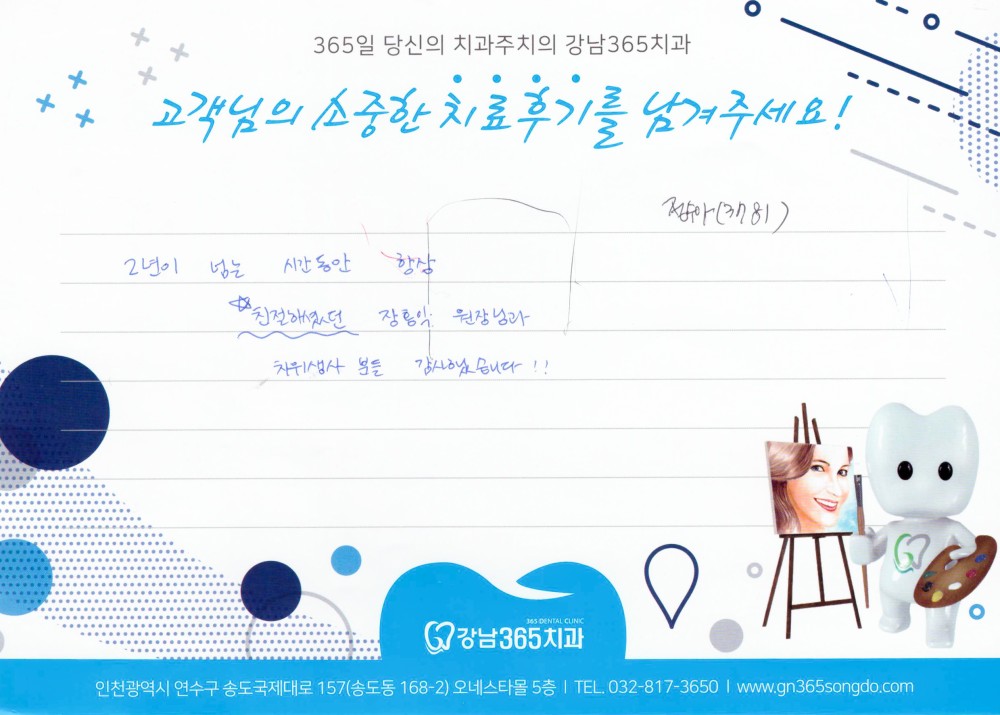 365일 당신의 치과주치의 강남365치과
고객님의 소중한 치료후기를 남겨주세요!
(3781)
2년이 넘는 시간동안 항상
친절해셨던 장통익 원장님과
치위생사 분들 감사했습니다!!
365 DENTAL CLINIC
강남365치과
인천광역시 연수구 송도국제대로 157(송도동 168-2) 오네스타몰 5층 | TEL. 032-817-3650 | www.gn365songdo.com